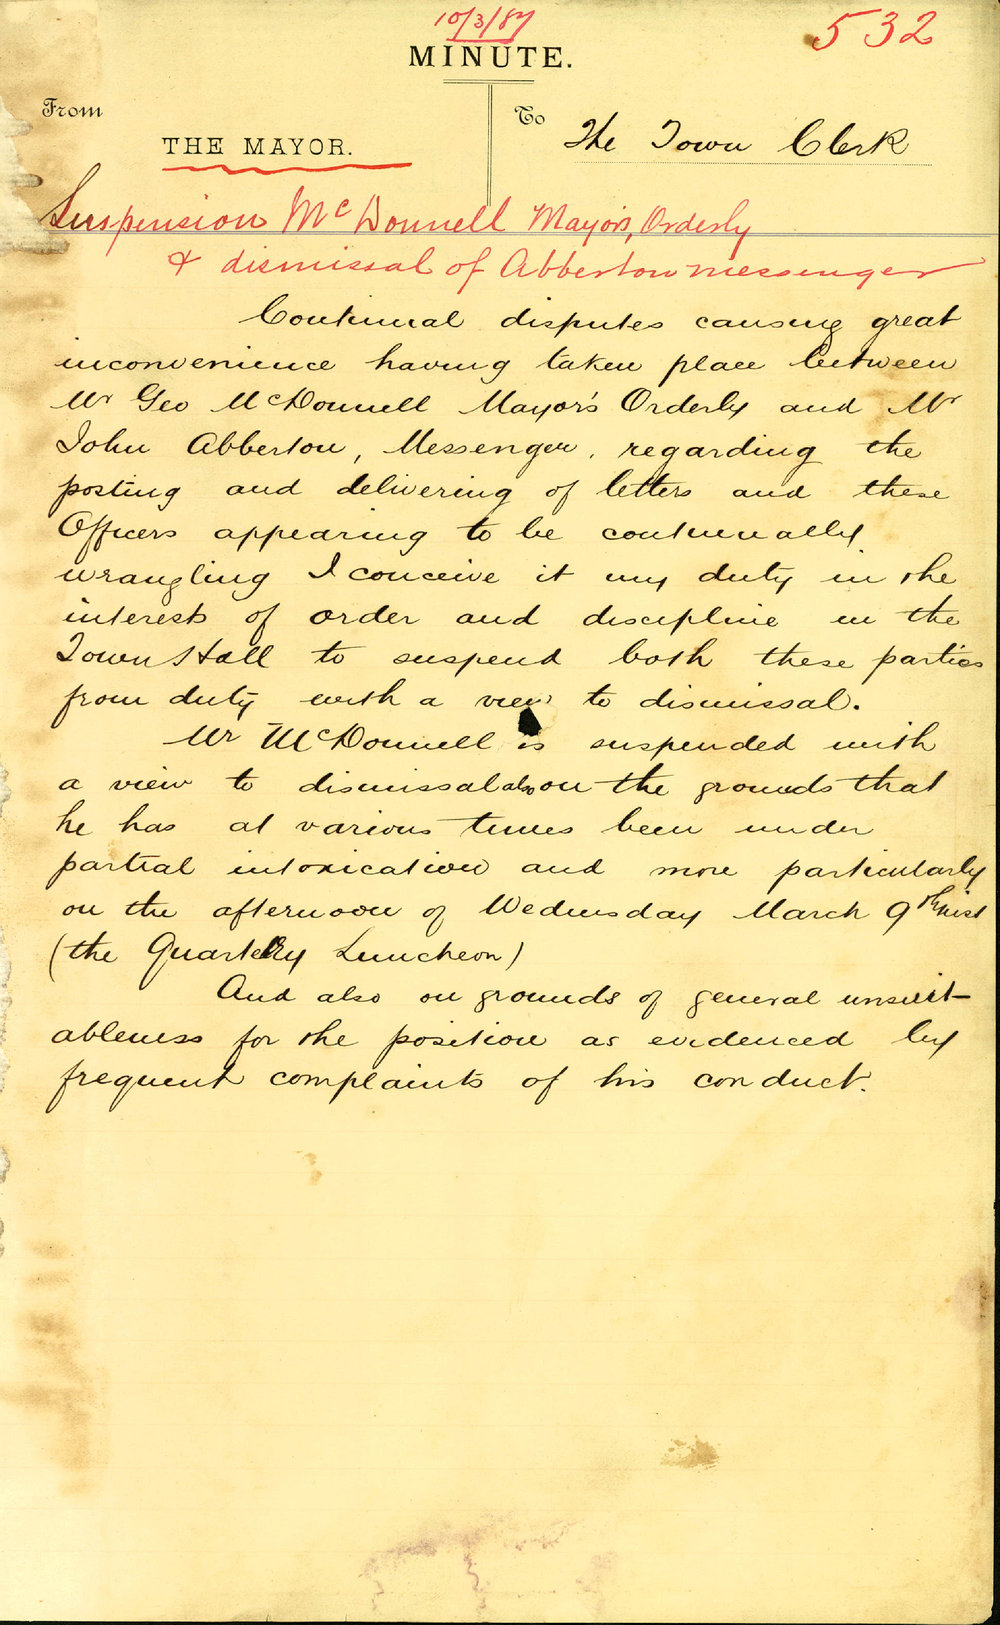 10/3/87
532
MINUTE.
From
THE MAYOR.
To
The Town Clerk
Suspension McDonnell Mayor's Orderly
& dismissal of Abberton messenger
Continual disputes causing great
inconvenience having taken place between
Mr Geo McDonnell Mayor's Orderly and Mr
John Abberton, Messenger, regarding the
posting and delivering of letters and these
Officers appearing to be continually
wrangling I conceive it my duty in the
interests of order and discipline in the
Town Hall to suspend both these parties
from duty with a view to dismissal.
Mr McDonnell is suspended with
a view to dismissal also on the grounds that
he has at various times been under
partial intoxication and more particularly
on the afternoon of Wednesday March 9th inst
(the Quarterly Luncheon)
And also on grounds of general unsuit-
ableness for the position as evidenced by
frequent complaints of his conduct.